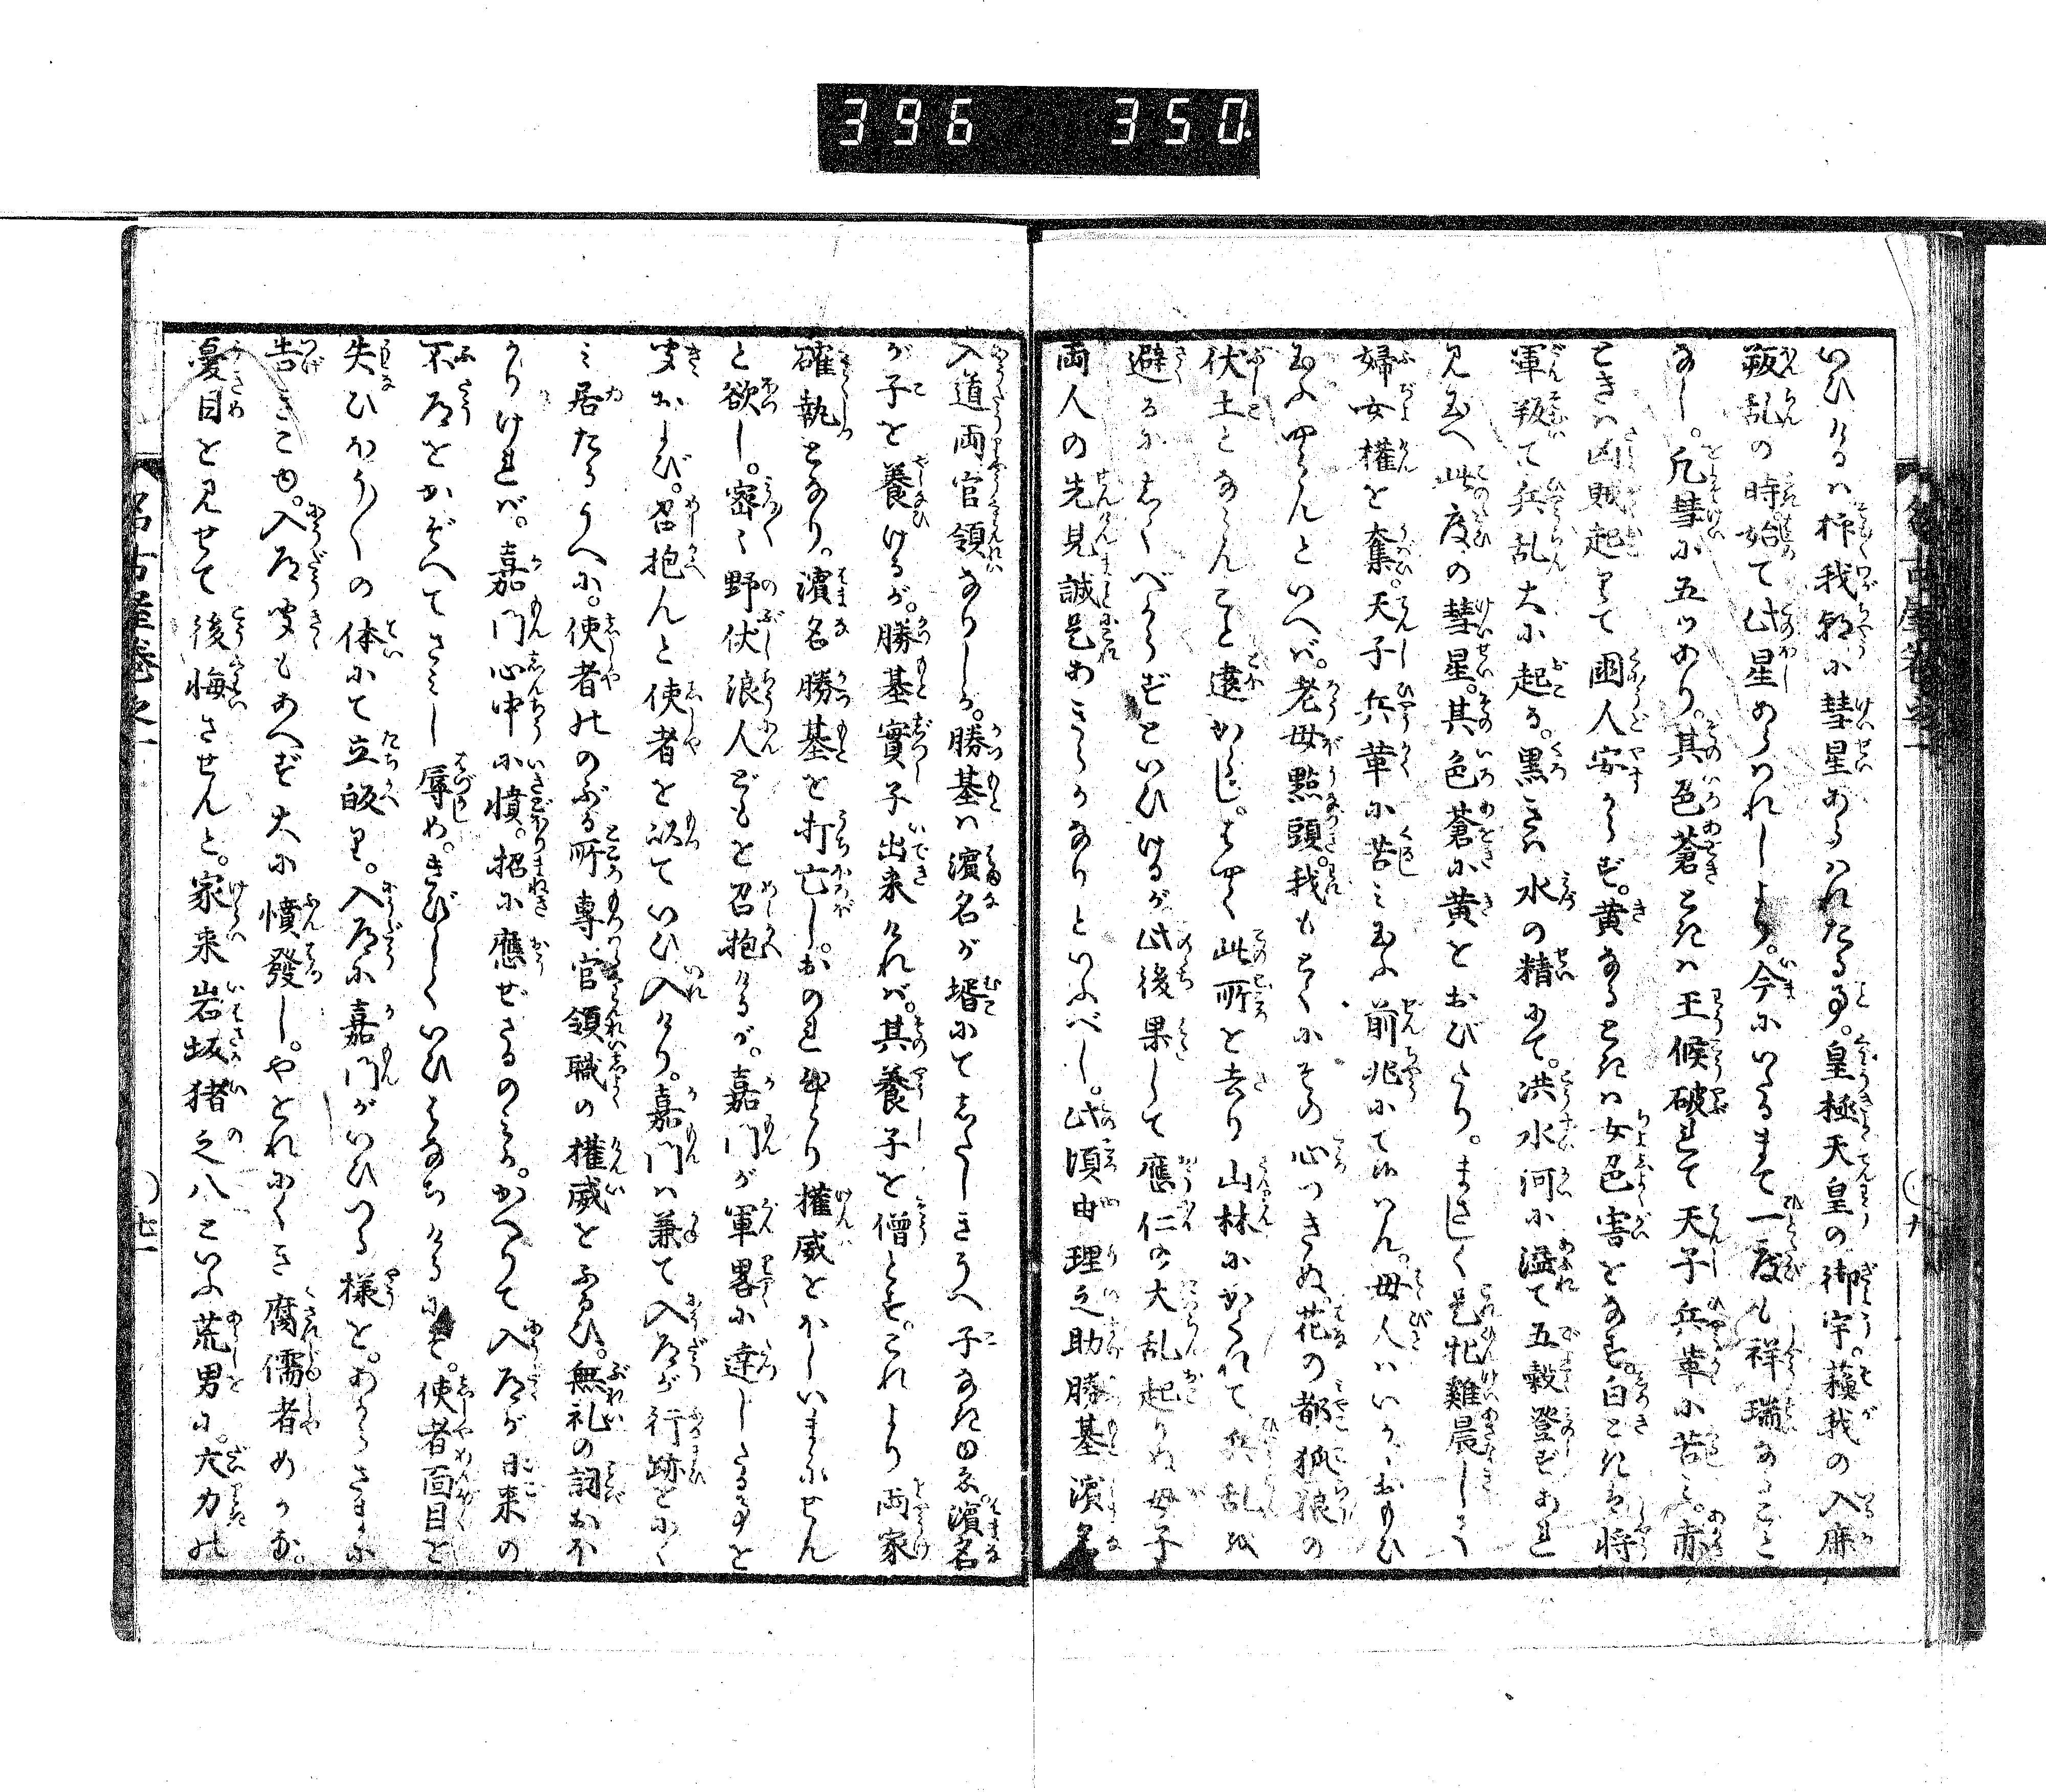 396 350
いひけるは抑我朝に彗星あらはれたる事。皇極天皇の御宇。蘓我の入麻
叛乱の時始て此星あらはれしより。今にいたるまで一度も祥瑞なること
なし。凡彗に五ツあり。其色蒼ときは王候破れて天子兵革に苦ミ。赤
ときは凶賊起りて國人安からず。黄なるときは女色害をなす。白ときは将
軍叛て兵乱大に起る。黒きは水の精にて。洪水河に溢て五穀登ずあれ
見玉へ此度の彗星。其色蒼に黄をおびたり。まさしく是牝雞晨して
婦女權を奪。天子兵革に苦ミ玉ふ前兆にて候はん。母人はいかゞおもひ
玉ふやらんといへば。老母點頭。我もとくにその心つきぬ。花の都狐狼の
伏土とならんこと遠からじ。はやく此所を去り山林にかくれて兵乱を
避るにしくべからずといひけるが此後果して應仁の大乱起りぬ母子
両人の先見誠是あきらかなりといふべし。此頃由理之助勝基濱名
入道両官領なりしが。勝基は濱名が壻にてしたしきうへ子なきゆゑ。濱名
が子を養けるが。勝基實子出来ければ。其養子を僧とす。これより両家
確執となり。濱名勝基を打亡し。おのれひとり權威をほしいまゝにせん
と欲し。密〻野伏浪人どもを召抱けるが。嘉門が軍畧に達したる事を
聞および。召抱んと使者を以ていひ入けり。嘉門は兼て入道が行跡をにく
ミ居たるうへに。使者のゝぶる所專官領職の權威をふるひ。無礼の詞おほ
かりければ。嘉門心中に憤。招に應ぜざるのミか。かへりて入道が日来の
不道をかぞへてさミし辱め。きびしくいひはなちけるにぞ。使者面目を
失ひほう〳〵の体にて立皈り。入道に嘉門がいひつる様を。あからさまに
告きこゆ。入道聞もあへず大に憤發し。やをれにくき腐儒者めかな。
憂目を見せて後悔させんと。家来岩坂猪之八といふ荒男に。大力の
名古屋巻之一